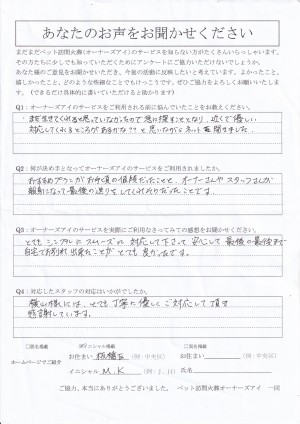 あなたのお声をお聞かせください
まだまだペット訪問火葬(オーナーズアイ)のサービスを知らない方がたくさんいらっしゃいます。
その方たちに少しでも知っていただくためにアンケートにご協力いただけないでしょうか。
あなた様のご意見をお聞かせいただき、今後の活動に反映したいと考えています。よかったこと、
嬉しかったこと、どのような些細なことでもけっこうです。ぜひご協力をよろしくお願いいたします。
(できるだけ具体的に書いていただけると助かります)
Q1:オーナーズアイのサービスをご利用される前に悩んでいたことをお教えください。
まだ生きてくれると思っていなかったので
対応してくれるところがあるかな??と思いながらネットを開きました。
Q2:何が決め手となってオーナーズアイのサービスをご利用されましたか。
おすすめプランがお手頃の値段だったことと、オーナーさんやスタッフさんが
親身になって最後の送りをしてくれそうだったことです。
Q3:オーナーズアイのサービスを実際にご利用なさってみての感想をお聞かせください。
とてもシンプルにスムーズに対応して下さって安心して最後の最後まで
自宅でお別れ出来たことがとても良かったです。
Q4:対応したスタッフの対応はいかがでしたか。
様には、とても丁寧に優しくご対応して頂き
感謝しています。
□匿名掲載 ☑イニシャル掲載 □実名掲載
ホームページでご紹介
お住まい 板橋区 (例:中央区) お住まい (例:中央区)
イニシャル M.K (例:J.H) 氏名
ご協力、本当にありがとうございました。 ペット訪問火葬オーナーズアイ 一同